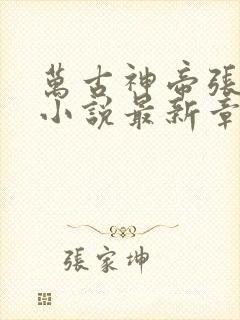 萬古神帝張
小說最新章
張家坤